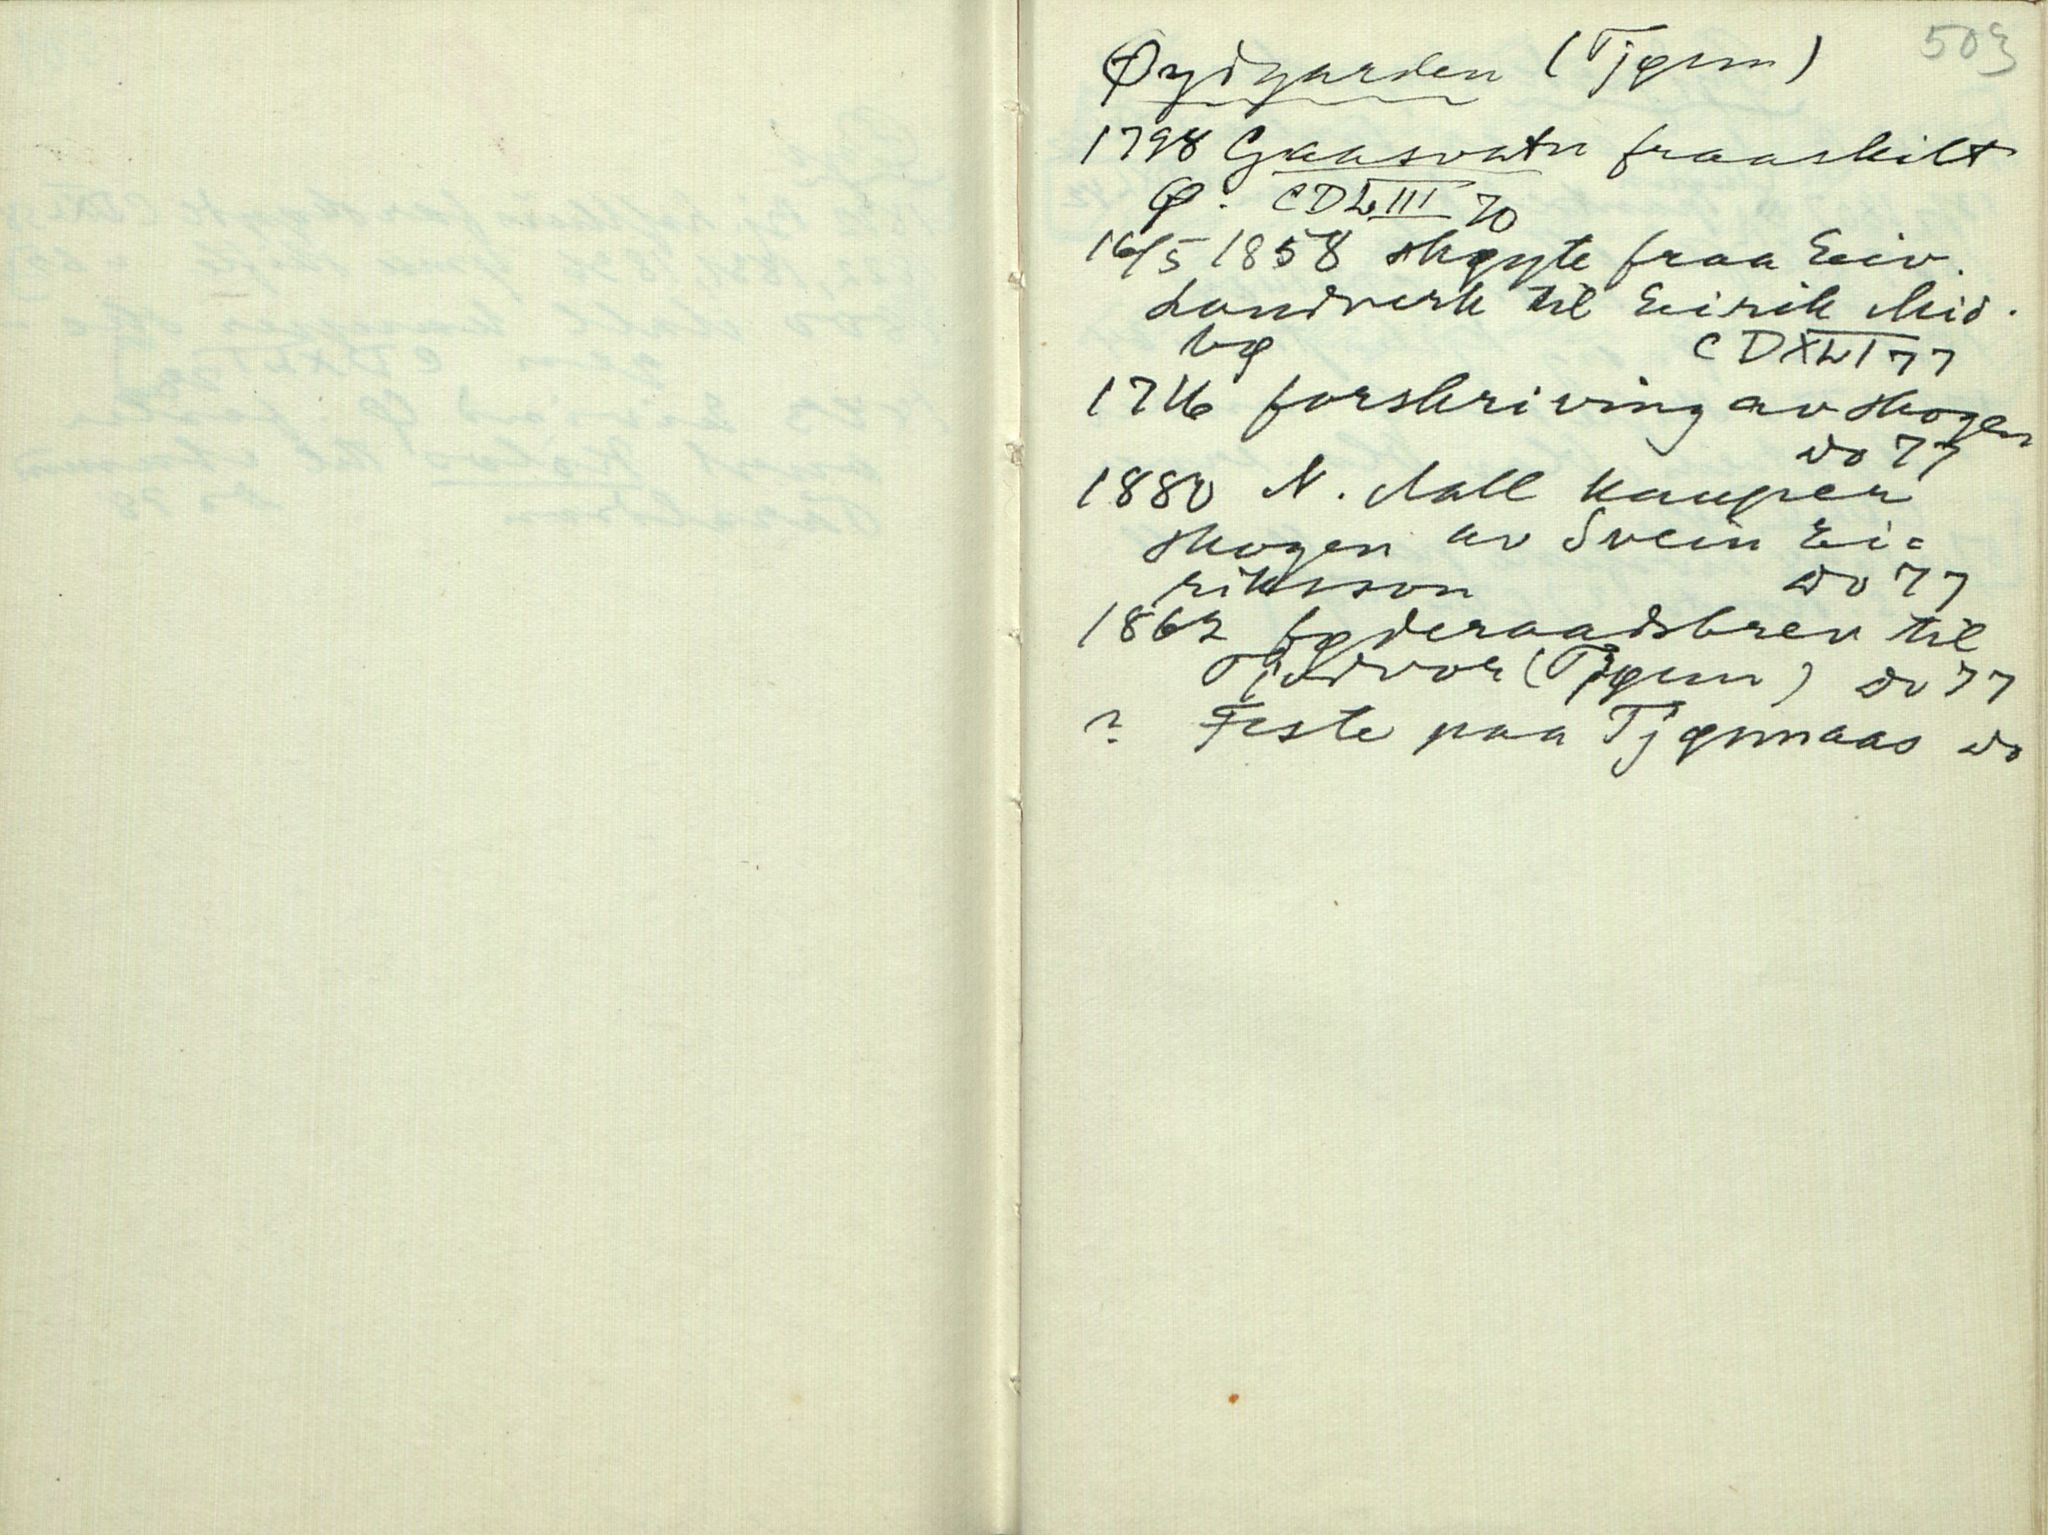 503
Øydgarden (Tjønn)
1798 Gaasvatn fraaskilt
Ø. CDLIII 70
16/5 1858 skøyte fraa Eiv.
Landverk til Eirik Mid-
bø CDXLI 77
1716 forskriving av skogen
do 77
1880 N. Aall kauper
skogen av Svein Ei-
riksson do 77
1862 føderaadsbrev til
(Tjønn) do 77
? Feste paa Tjønnaas do